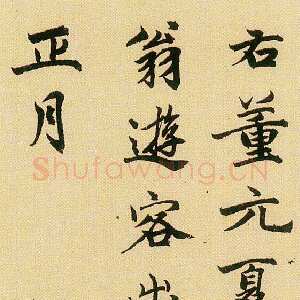 右董元夏
翁遊容
正月
Shufawang.CN